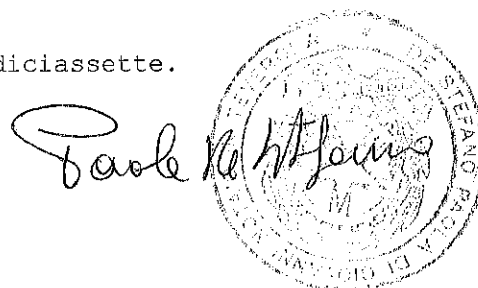 diciassette.
Paola De Stefano
DE STEFANO PAOLA DI GIOVANNI NOTAIO